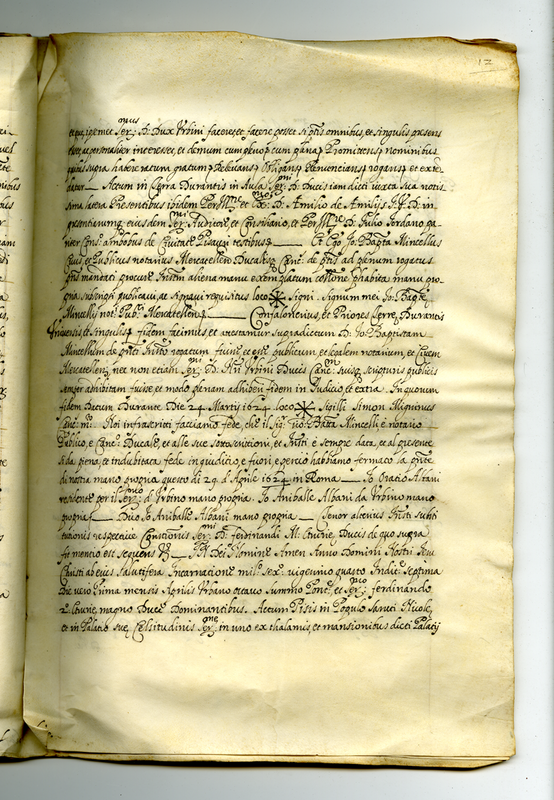 12
Ser.mus D. Dux Urbini facere, et facere posset si pntis omnibus, et singulis presens
personaliter interesset, et demum cum plenis cum plena Promittens nominibus
quibus supra habere ratum gratum Relevans Obligans Renuncians rogans et exten
datur — Actum in Terra Durantis in Aula Ser.mi D. Ducis iam dicti iuxta sua notis
sima latera Presentibus ibidem Per Ill.ri et D. Amilio de Amilijs I. V. D. in
presentiarum eiusdem Ser.mi Auditore, et Consiliario, et Per Ill.re D. Julio Jordano pa
riter Cons. ambobus de Civitate Pisauri testibus — Et Ego Jo: Bapta Mincellus
Civis, et Publicus notarius Mercatellen Ducalisq Canc. de pntis ad plenum rogatus
pntis mandati procure Instru aliena manu exemplatum collone phabita manu pro
pria subscripsi publicavi, ac signavi requisitus loco Signi. Signum mei Jo: Bapte
Mincelli not. Pub. Mercatellen — Confalonerius, et Priores Terre Durantis
Universis, et singulis fidem facimus, et attestamur supradictum D. Jo: Baptistam
Mincellum de pnti Instro rogatum fuisse, et esse publicum, et legalem notarium, et Civem
Mercatellen, nec non etiam Ser.mi D. Nri Urbini Ducis Canc. suisq scripturis publicis
semper adhibitam fuisse, et modo plenam adhiberi fidem in Judicio, et extra. In quorum
fidem Datum Durante Die 24 Martij 1624 loco Sigilli Simon Miginus
Canc. m. Noi infrascritti facciamo fede, che il Sig. Gio: Bata Mincelli è notario
Publico, e Canc. Ducale, et alle sue sottoscrittioni, et Instri è sempre data, et al presente
si da piena, et indubitata fede in giudicio, e fuori, e perciò habbiamo fermato la pnte
di nostra mano propria questo di 29 d'Aprile 1624 in Roma — Jo Oratio Albani
residente per il Ser.mo d'Urbino mano propria. Jo Anibale Albani da Urbino mano
propria — Dico Jo Anibale Albani mano propria — Tenor alterius Instri substi
tutionis respective Constitutionis Ser.mi D. ferdinandi M. Etrurie Ducis de quo supra
fit mentio est sequens — In Dei Nomine Amen Anno Domini Nostri Jesu
Christi ab eius Salutifera Incarnatione mill. sex. vigesimo quarto Indict. septima
Die vero Prima mensis Aprilis Urbano octavo Summo Pont. et Ser.mo ferdinando
2.o Etrurie magno Duce Dominantibus. Actum Pisis in Populo Sancti Nicole,
et in Palatio sue Celsitudinis Ser.me in uno ex thalamis, et mansionibus dicti Palatij